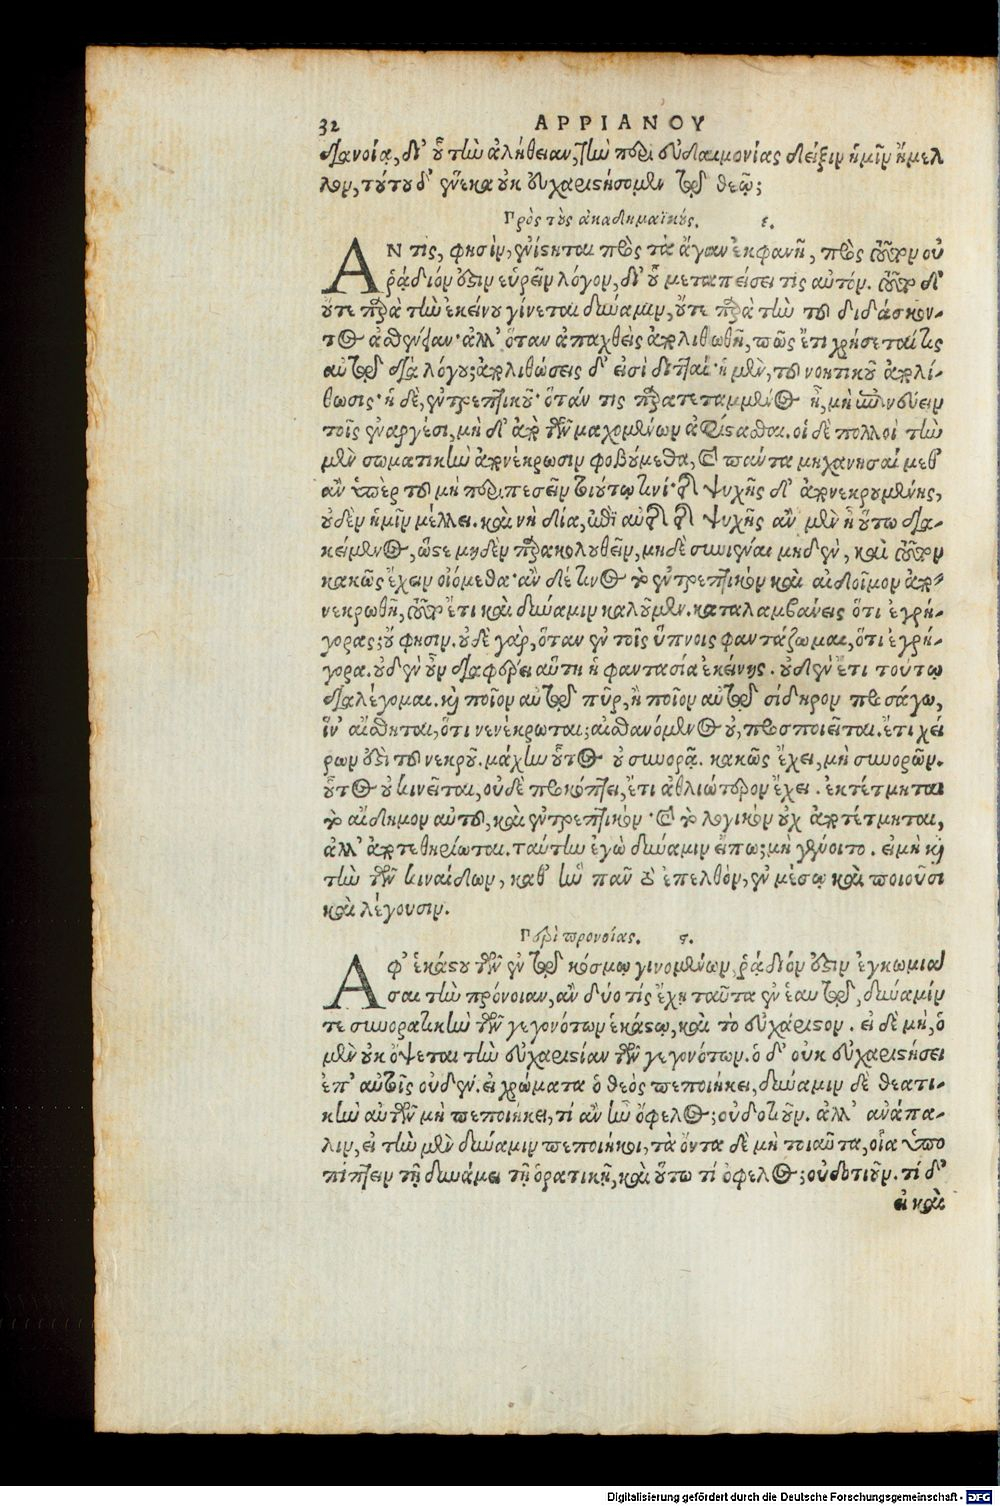 32 ΑΡΡΙΑΝΟΥ
διανοίᾳ, δι' οὗ τὴν ἀλήθειαν, τὴν περὶ εὐδαιμονίας δείξειν ἡμῖν ἤμελ
λον, τούτου δ' ἕνεκα οὐκ εὐχαριστήσομεν τῷ θεῷ;
Πρὸς τοὺς ἀκαδημαϊκούς. ε.
ΑΝ τις, φησὶν, ἐνίστηται πρὸς τὰ ἄγαν ἐκφανῆ, πρὸς τοῦτον οὐ
ῥᾴδιόν ἐστιν εὑρεῖν λόγον, δι' οὗ μεταπείσει τις αὐτόν. τοῦτο δ'
οὔτε παρὰ τὴν ἐκείνου γίνεται δύναμιν, οὔτε παρὰ τὴν τοῦ διδάσκον-
τος ἀσθένειαν· ἀλλ' ὅταν ἀπαχθεὶς ἀπολιθωθῇ, πῶς ἔτι χρήσεταί τις
αὐτῷ διὰ λόγου; ἀπολιθώσεις δ' εἰσὶ διτταί· ἡ μὲν, τοῦ νοητικοῦ ἀπολί-
θωσις· ἡ δὲ, ἐντρεπτικοῦ· ὅτάν τις παρατεταμμένος ᾖ, μὴ ἐπινεύειν
τοῖς ἐναργέσι, μὴ δ' ἀπὸ τῶν μαχομένων ἀφίστασθαι. οἱ δὲ πολλοὶ τὴν
μὲν σωματικὴν ἀπονέκρωσιν φοβούμεθα, καὶ πάντα μηχανησαίμεθ'
ἂν ὑπὲρ τοῦ μὴ περιπεσεῖν τοιούτῳ τινί· τῆς ψυχῆς δ' ἀπονεκρουμένης,
οὐδὲν ἡμῖν μέλλει. καὶ νὴ δία, ἐπὶ αὐτῆς τῆς ψυχῆς ἂν μὲν ᾖ οὕτω δια-
κείμενος, ὥστε μηδὲν παρακολουθεῖν, μηδὲ συνιέναι μηδὲν, καὶ τοῦτον
κακῶς ἔχειν οἰόμεθα· ἂν δέ τινος τὸ ἐντρεπτικὸν καὶ αἰδοῖμον ἀπο-
νεκρωθῇ, τοῦτο ἔτι καὶ δύναμιν καλοῦμεν. καταλαμβάνεις ὅτι ἐγρή-
γορας; οὔ φησιν. οὐδὲ γὰρ, ὅταν ἐν τοῖς ὕπνοις φαντάζωμαι, ὅτι ἐγρή-
γορα. οὐδὲν οὖν διαφέρει αὕτη ἡ φαντασία ἐκείνης. οὐδὲν ἔτι τούτῳ
διαλέγομαι. καὶ ποῖον αὐτῷ πῦρ, ἢ ποῖον αὐτῷ σίδηρον προσάγω,
ἵν' αἴσθηται, ὅτι νενέκρωται; αἰσθανόμενος οὐ, προσποιεῖται. ἔτι χεί
ρων ἐστὶ τοῦ νεκροῦ. μάχην οὗτος οὐ συνορᾷ. κακῶς ἔχει, μὴ συνορῶν.
οὗτος οὐ κινεῖται, οὐδὲ προκόπτει, ἔτι ἀθλιώτερον ἔχει. ἐκτέτμηται
τὸ αἴδημον αὐτοῦ, καὶ ἐντρεπτικόν· καὶ τὸ λογικὸν οὐχ ἀποτέτμηται,
ἀλλ' ἀποτεθηρίωται. ταύτην ἐγὼ δύναμιν εἴπω; μὴ γένοιτο. εἰ μὴ καὶ
τὴν τῶν κιναίδων, καθ' ἣν πᾶν τὸ ἐπελθὸν, ἐν μέσῳ καὶ ποιοῦσι
καὶ λέγουσιν.
Περὶ προνοίας. ς.
ΑΦ' ἑκάστου τῶν ἐν τῷ κόσμῳ γινομένων, ῥᾴδιόν ἐστιν ἐγκωμιά
σαι τὴν πρόνοιαν, ἂν δύο τίς ἔχῃ ταῦτα ἐν ἑαυτῷ, δύναμίν
τε συνορατικὴν τῶν γεγονότων ἑκάστῳ, καὶ τὸ εὐχάριστον. εἰ δὲ μὴ, ὁ
μὲν οὐκ ὄψεται τὴν εὐχαριστίαν τῶν γεγονότων. ὁ δ' οὐκ εὐχαριστήσει
ἐπ' αὐτοῖς οὐδέν. εἰ χρώματα ὁ θεὸς πεποιήκει, δύναμιν δὲ θεατι-
κὴν αὐτῶν μὴ πεποιήκει, τί ἂν ἦν ὄφελος; οὐδοτιοῦν. ἀλλ' ἀνάπα-
λιν, εἰ τὴν μὲν δύναμιν πεποιήκοι, τὰ ὄντα δὲ μὴ τοιαῦτα, οἷα ὑπο
πίπτειν τῇ δυνάμει τῇ ὁρατικῇ, καὶ οὕτω τί ὀφελος; οὐδοτιοῦν. τί δ'
εἰ καὶ
Digitalisierung gefördert durch die Deutsche Forschungsgemeinschaft - DFG